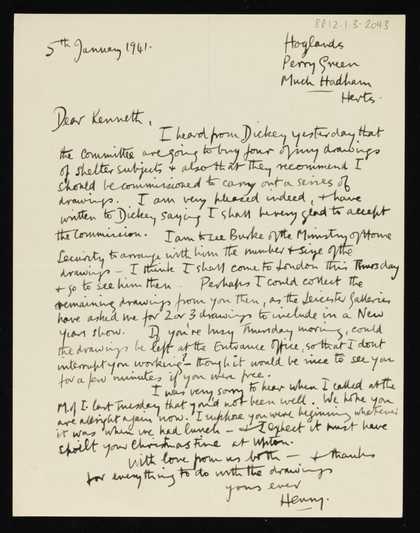 8812.1.3.2043
5th January 1941.
Hoglands
Perry Green
Much Hadham
Herts.
Dear Kenneth,
I heard from Dickey yesterday that
the Committee are going to buy four of my drawings
of shelter subjects & also that they recommend I
should be commissioned to carry out a series of
drawings. I am very pleased indeed, & have
written to Dickey saying I shall be very glad to accept
the commission. I am to see Burke of the Ministry of Home
Security to arrange with him the number & size of the
drawings – I think I shall come to London this Thursday
& go to see him then. Perhaps I could collect the
remaining drawings from you then, as the Leicester Galleries
have asked me for 2 or 3 drawings to include in a New
Years show. If you're busy Thursday morning, could
the drawings be left at the Entrance Office, so that I dont
interrupt you working – though it would be nice to see you
for a few minutes if you were free.
I was very sorry to hear when I called at the
M of I last Tuesday that you'd not been well. We hope you
are alright again now. I suppose you were beginning whatever
it was when we had lunch – & I expect it must have
spoilt your Christmas time at Upton.
With love from us both – & thanks
for everything to do with the drawings
yours ever
Henry.